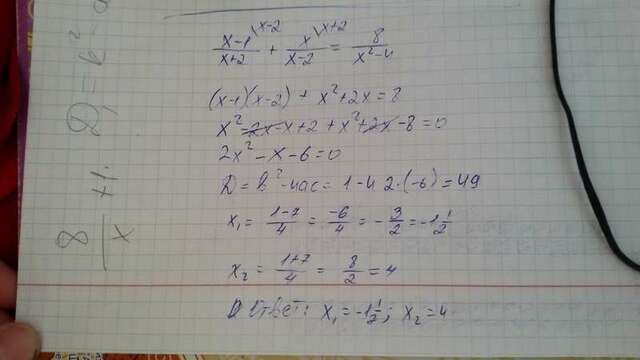 (x-1)\x-2 / (x+2) + x\x+2 / (x-2) = 8 / (x²-4)
(x-1)(x-2) + x²+2x = 8
x² - 2x - x + 2 + x² + 2x - 8 = 0
2x² - x - 6 = 0
D = b² - 4ac = 1 - 4 2·(-6) = 49
x₁ = (1-7)/4 = -6/4 = -3/2 = -1 1/2
x₂ = (1+7)/4 = 8/2 = 4
Ответ: x₁ = -1 1/2; x₂ = 4
8/x + 1.
D₁ = b² -